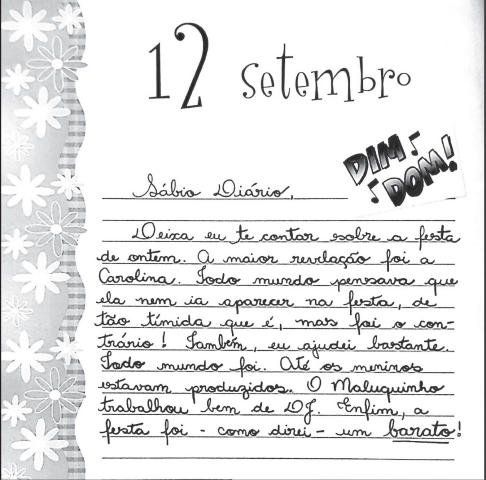 12 setembro
DIM DOM!
Sábio Diário,
Deixa eu te contar sobre a festa
de ontem. A maior revelação foi a
Carolina. Todo mundo pensava que
ela nem ia aparecer na festa, de
tão tímida que é, mas foi o con-
trário! Também, eu ajudei bastante.
Todo mundo foi. Até os meninos
estavam produzidos. O Maluquinho
trabalhou bem de DJ. Enfim, a
festa foi - como direi - um barato!